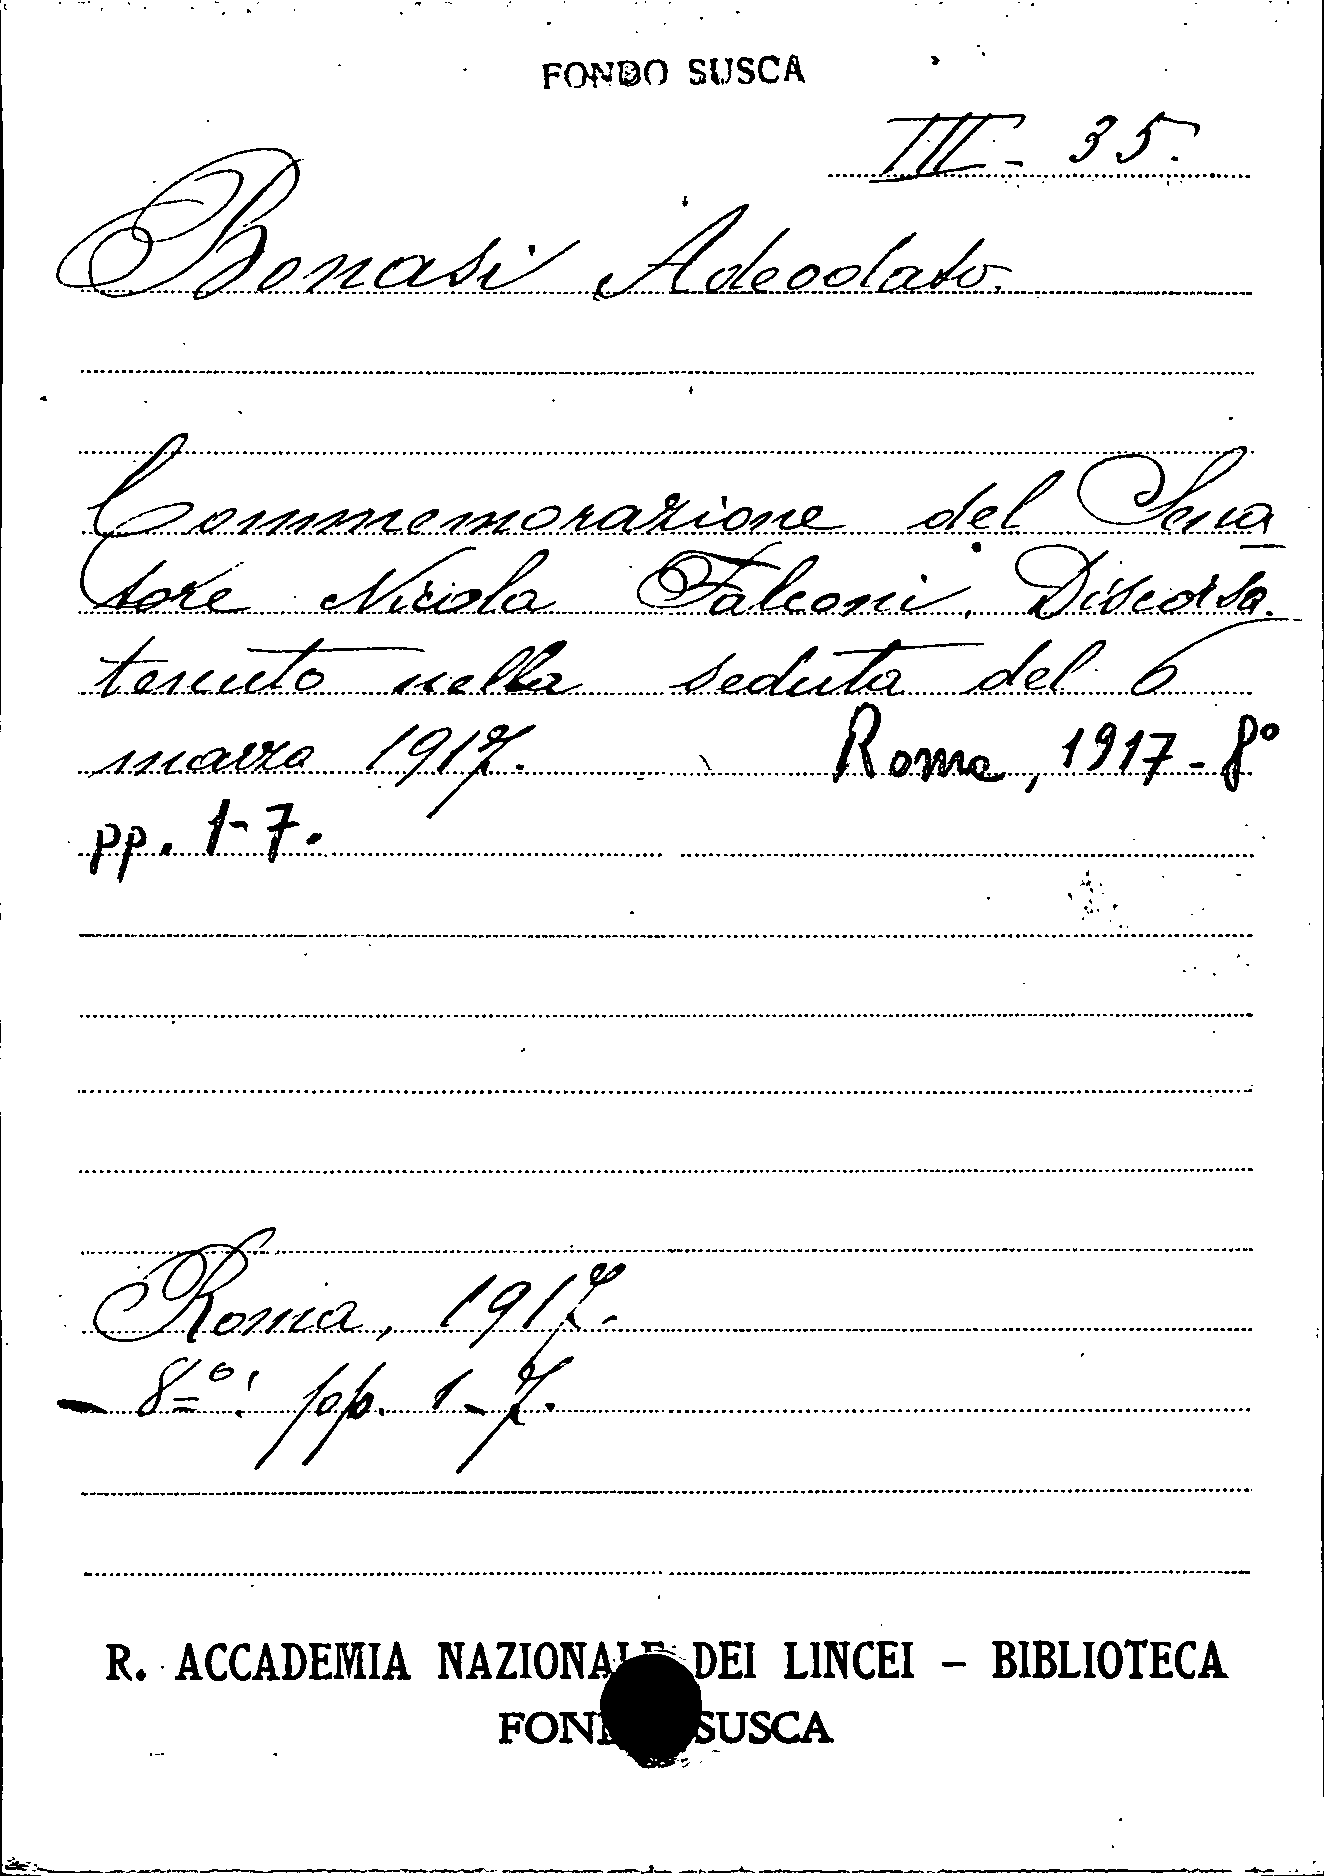 FONDO SUSCA
III - 35.
Bonasi Adeodato.
Commemorazione del Sena
tore Nicola Falconi. Discorso
tenuto nella seduta del 6
marzo 1917. Roma, 1917 - 8°
pp. 1-7.
Roma, 1917.
- 8°: pp. 1-7.
R. ACCADEMIA NAZIONALE DEI LINCEI - BIBLIOTECA
FONDO SUSCA